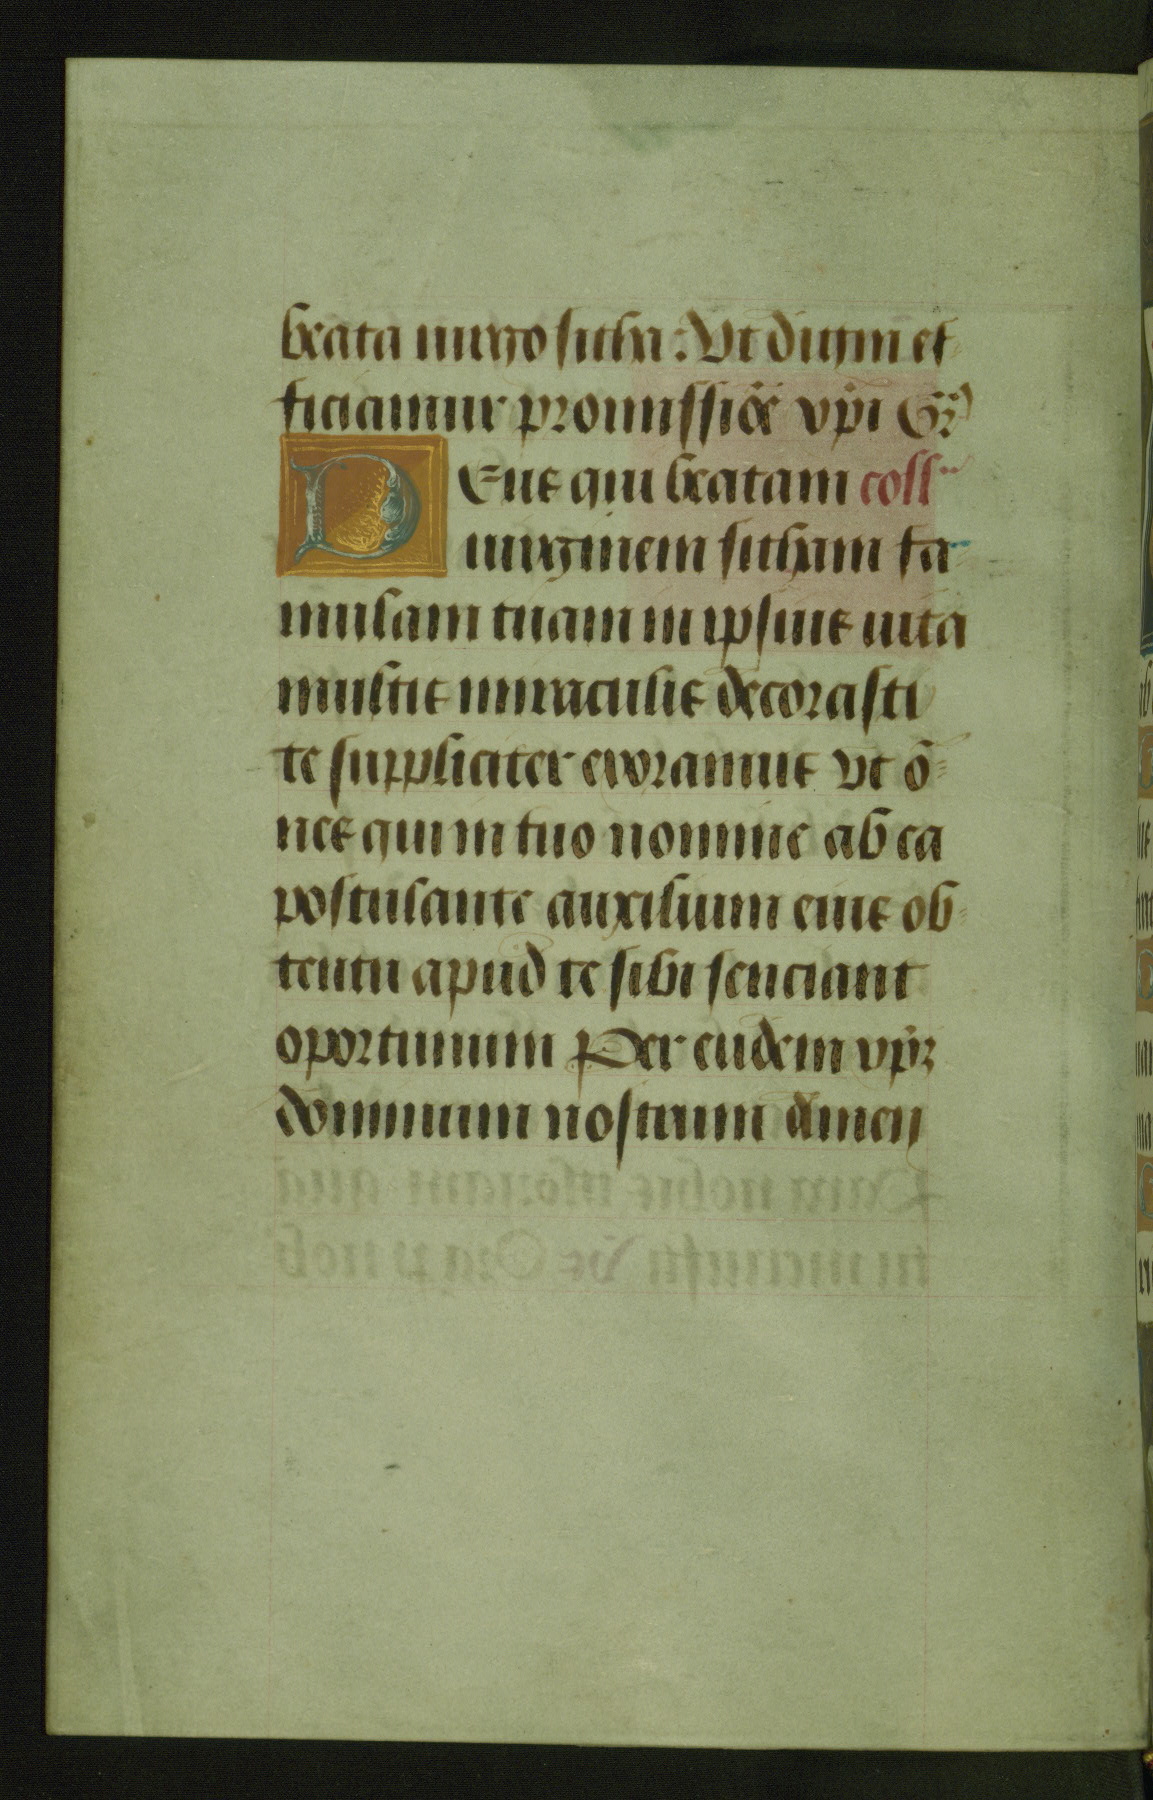 beata uirgo sitha: Vt digni ef-
ficiamur promissiõe xp̃i Or̃o
Deus qui beatam coll̃
uirginem sitham fa-
mulam tuam in ipsius uita
multis miraculis decorasti
te suppliciter exoramus vt õ-
nes qui in tuo nomine ab ea
postulante auxilium eius ob-
tentu apud te sibi senciant
oportunum Per eũdem xp̃ꝫ
dominum nostrum amen